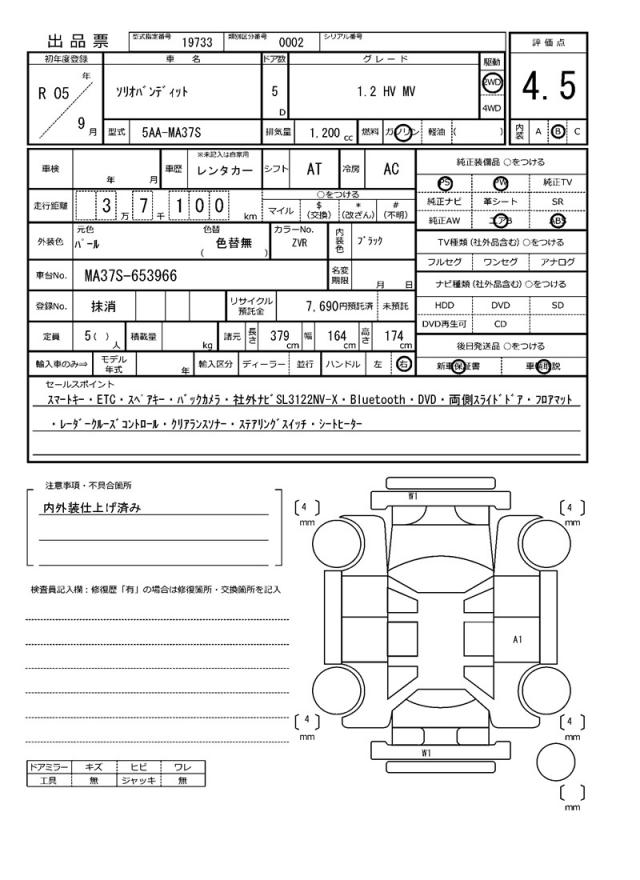 出品票 型式指定番号 19733 類別区分番号 0002 シリアル番号
評価点
4.5
内装 A B C
初年度登録 車名 ドア数 グレード 駆動
R 05 年 9 月 ソリオバンディット 5 D 1.2 HV MV 2WD 4WD
型式 5AA-MA37S 排気量 1.200 cc 燃料 ガソリン 軽油 ( )
車検 年 月 車歴 ※未記入は自家用 レンタカー シフト AT 冷房 AC
走行距離 3 万 7 千 1 0 0 km
○をつける
マイル $(交換) *(改ざん) #(不明)
外装色 元色 パール 色替 色替無 ( ) カラーNo. ZVR 内装色 ブラック
車台No. MA37S-653966 名変期限 月 日
登録No. 抹消 リサイクル預託金 7,690円預託済 未預託
定員 5( ) 人 積載量 kg 諸元 長さ 379 cm 幅 164 cm 高さ 174 cm
輸入車のみ⇒ モデル年式 年 輸入区分 ディーラー 並行 ハンドル 左 右
純正装備品 ○をつける
PS PW 純正TV
純正ナビ 革シート SR
純正AW エアB ABS
TV種類(社外品含む)○をつける
フルセグ ワンセグ アナログ
ナビ種類(社外品含む)○をつける
HDD DVD SD
DVD再生可 CD
後日発送品 ○をつける
新車保証書 車輌取説
セールスポイント
スマートキー・ETC・スペアキー・バックカメラ・社外ナビSL3122NV-X・Bluetooth・DVD・両側スライドドア・フロアマット
・レーダークルーズコントロール・クリアランスソナー・ステアリングスイッチ・シートヒーター
注意事項・不具合箇所
内外装仕上げ済み
検査員記入欄:修復歴「有」の場合は修復箇所・交換箇所を記入
W1
[ 4 ] mm
[ 4 ] mm
A1
[ 4 ] mm
[ 4 ] mm
W1
[ ] mm
ドアミラー キズ ヒビ ワレ
工具 無 ジャッキ 無